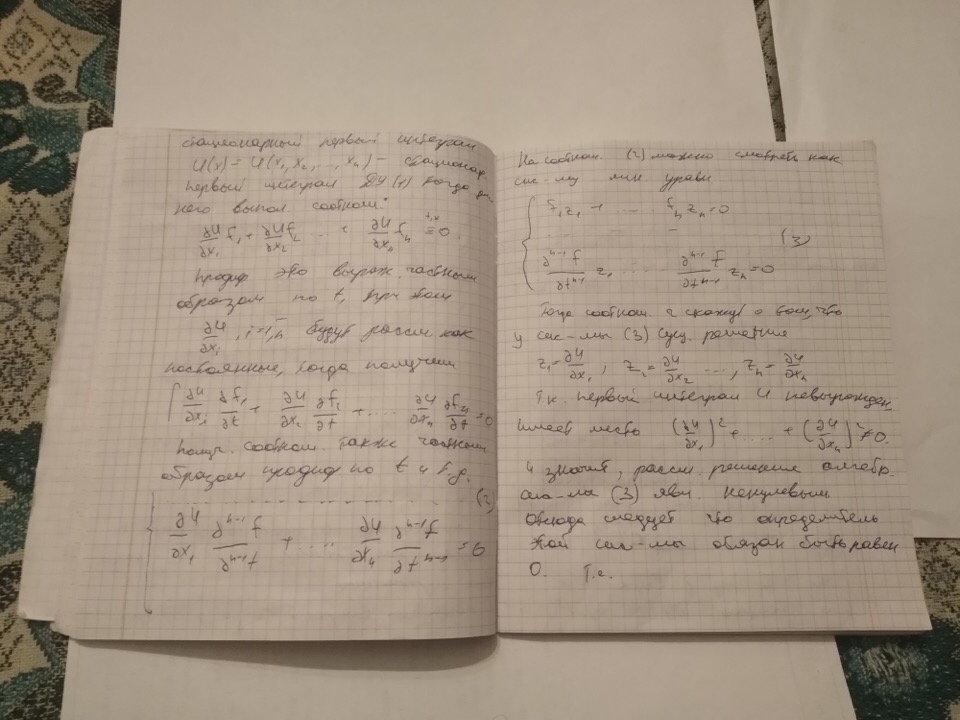 стационарный первый интеграл
U(x) = U(x₁, x₂, ..., x_n) – стационар.
первый интеграл ДУ (1) когда для
него выпол. соотнош.
∂U/∂x₁ f₁ + ∂U/∂x₂ f₂ ... + ∂U/∂x_n f_n ≡ 0.
t,x
Продиф это выраж. частным
образом по t, при этом
∂U/∂xᵢ, i=1,n будут рассм как
постоянные, тогда получим
∂U/∂x₁ ∂f₁/∂t + ∂U/∂x₂ ∂f₂/∂t + ... ∂U/∂x_n ∂f_n/∂t = 0
Получ. соотнош. также частным
образом продиф по t и т.д.
(2)
∂U/∂x₁ ∂ⁿ⁻¹f/∂tⁿ⁻¹ + .... ∂U/∂x_n ∂ⁿ⁻¹f/∂tⁿ⁻¹ = 0
На соотнош. (2) можно смотреть как
сис-му лин. уравн
f₁z₁ + ..... f_n z_n = 0
(3)
∂ⁿ⁻¹f/∂tⁿ⁻¹ z₁ ..... ∂ⁿ⁻¹f/∂tⁿ⁻¹ z_n = 0
Тогда соотнош. 2 скажут о том, что
у сис-мы (3) сущ. решение
z₁ = ∂U/∂x₁, z₂ = ∂U/∂x₂ ..., z_n = ∂U/∂x_n
Т.к. первый интеграл U невырожден,
имеет место (∂U/∂x₁)² + ..... + (∂U/∂x_n)² ≠ 0.
И значит, рассм. решение алгебр.
сис-мы (3) явл. ненулевым
Отсюда следует что определитель
этой сис-мы обязан быть равен
0. Т.е.